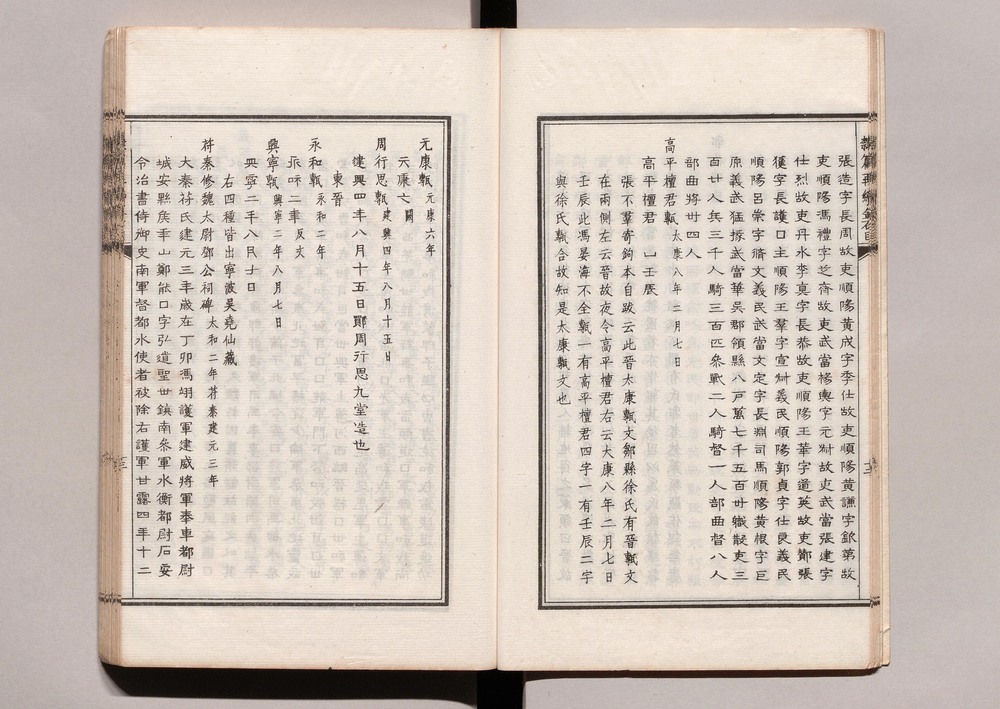 張造字長周故吏順陽黃成字季仕故吏順陽黃謙字 第故
吏順陽馮禮字芝齋故吏武當楊輿字元 故吏武當張建字
仕烈故吏丹水李真字長恭故吏順陽王華字道英故吏 張
獲字長護口主順陽王羣字宣 義民順陽郭貞字仕良義民
順陽呂崇字 文義民武當文定字長淵司馬順陽黃根字巨
原義武猛掾武當華吳郡領縣八戶萬七千五百丗職散吏三
百廿人兵三千人騎三百匹參戰二人騎督一人部曲督八人
部曲將丗四人
高平檀君甎 太康八年二月七日
高平檀君 山壬辰
張 不羣寄 本自跋云此晉太康甎文鄒縣徐氏有晉甎文
在兩側左云晉故夜令高平檀君右云大康八年二月七日
壬辰此馮晏海不全甎一有高平檀君四字一有壬辰二字
與徐氏甎合故知是太康甎文也
元康甎 元康六年
元康六 闕
周行思甎 建興四年八月十五日
建興四年八月十五日 周行思九堂造也
東晉
永和甎 永和二年
二年 反文
興寧甎 興寧二年八月七日
興寧二年八月十日
右四種皆出寧波吳堯仙藏
苻秦修魏太尉鄧公祠碑 太和二年苻秦建元三年
大秦苻氏建元三年歲在丁卯馮翊護軍建威將軍奉車都尉
城安縣侯華山鄭能口字弘道聖世鎮南參軍水衡都尉石安
令治書侍御史南軍督都水使者被除右護軍甘露四年十二